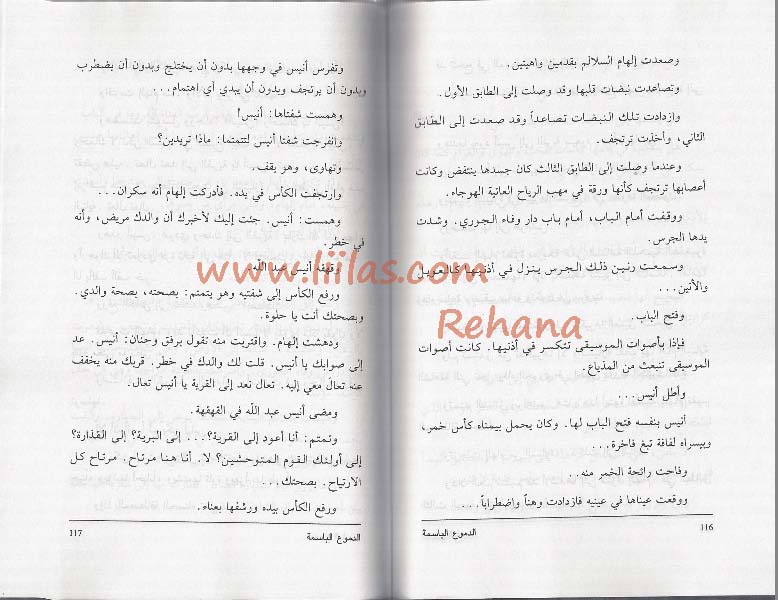 وصعدت إلهام السلالم بقدمين واهيتين.
وتصاعدت نبضات قلبها وقد وصلت إلى الطابق الأول.
وازدادت تلك النبضات تصاعداً وقد صعدت إلى الطابق
الثاني، وأخذت ترتجف.
وعندما وصلت إلى الطابق الثالث كان جسدها ينتفض وكانت
أعصابها ترتجف كأنها ورقة في مهب الرياح العاتية الهوجاء.
ووقفت أمام الباب، أمام باب دار وفاء الجوري. وشدت
يدها الجرس.
وسمعت رنين ذلك الجرس ينزل في أذنيها كالعويل
والأنين...
وفتح الباب.
فإذا بأصوات الموسيقى تتكسر في أذنيها. كانت أصوات
الموسيقى تنبعث من المذياع.
وأطل أنيس...
أنيس بنفسه فتح الباب لها. وكان يحمل بيمناه كأس خمر،
وبيسراه لفافة تبغ فاخرة...
وفاحت رائحة الخمر منه...
ووقعت عيناها في عينيه فازدادت وهناً واضطراباً...
116
الدموع الباسمة
وتفرس أنيس في وجهها بدون أن يختلج وبدون أن يضطرب
وبدون أن يرتجف وبدون أن يبدي أي اهتمام...
وهمست شفتاها: أنيس!
وانفرجت شفتا أنيس لتتمتما: ماذا تريدين؟
وتهاوى، وهو يقف.
وارتجفت الكأس في يده. فأدركت إلهام أنه سكران...
وهمست: أنيس. جئت إليك لأخبرك أن والدك مريض، وأنه
في خطر.
وقهقه أنيس عبد الله.
ورفع الكأس إلى شفتيه وهو يتمتم: بصحته، بصحة والدي.
وبصحتك أنت يا حلوة.
ودهشت إلهام. واقتربت منه تقول برفق وحنان: أنيس. عد
إلى صوابك يا أنيس. قلت لك والدك في خطر. قربك منه يخفف
عنه تعال معي إليه. تعال نعد إلى القرية يا أنيس تعال.
ومضى أنيس عبد الله في القهقهة.
وتمتم: أنا أعود إلى القرية؟... إلى البرية؟ إلى القذارة؟
إلى أولئك القوم المتوحشين؟ لا. أنا هنا مرتاح. مرتاح كل
الارتياح. بصحتك...
ورفع الكأس بيده ورشفها بعناء.
الدموع الباسمة
117
www.liilas.com
Rehana